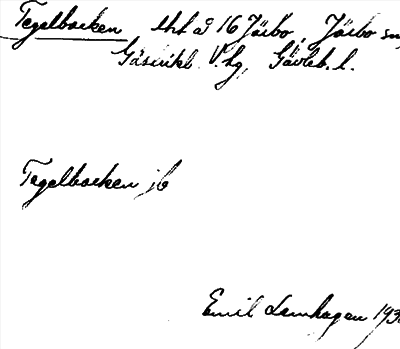 Tegelbacken tht å 16 Järbo, Järbo sn,
Gästrikl. V. hg, Gävleb. l.
Tegelbacken jb
Emil Lamhagen 193